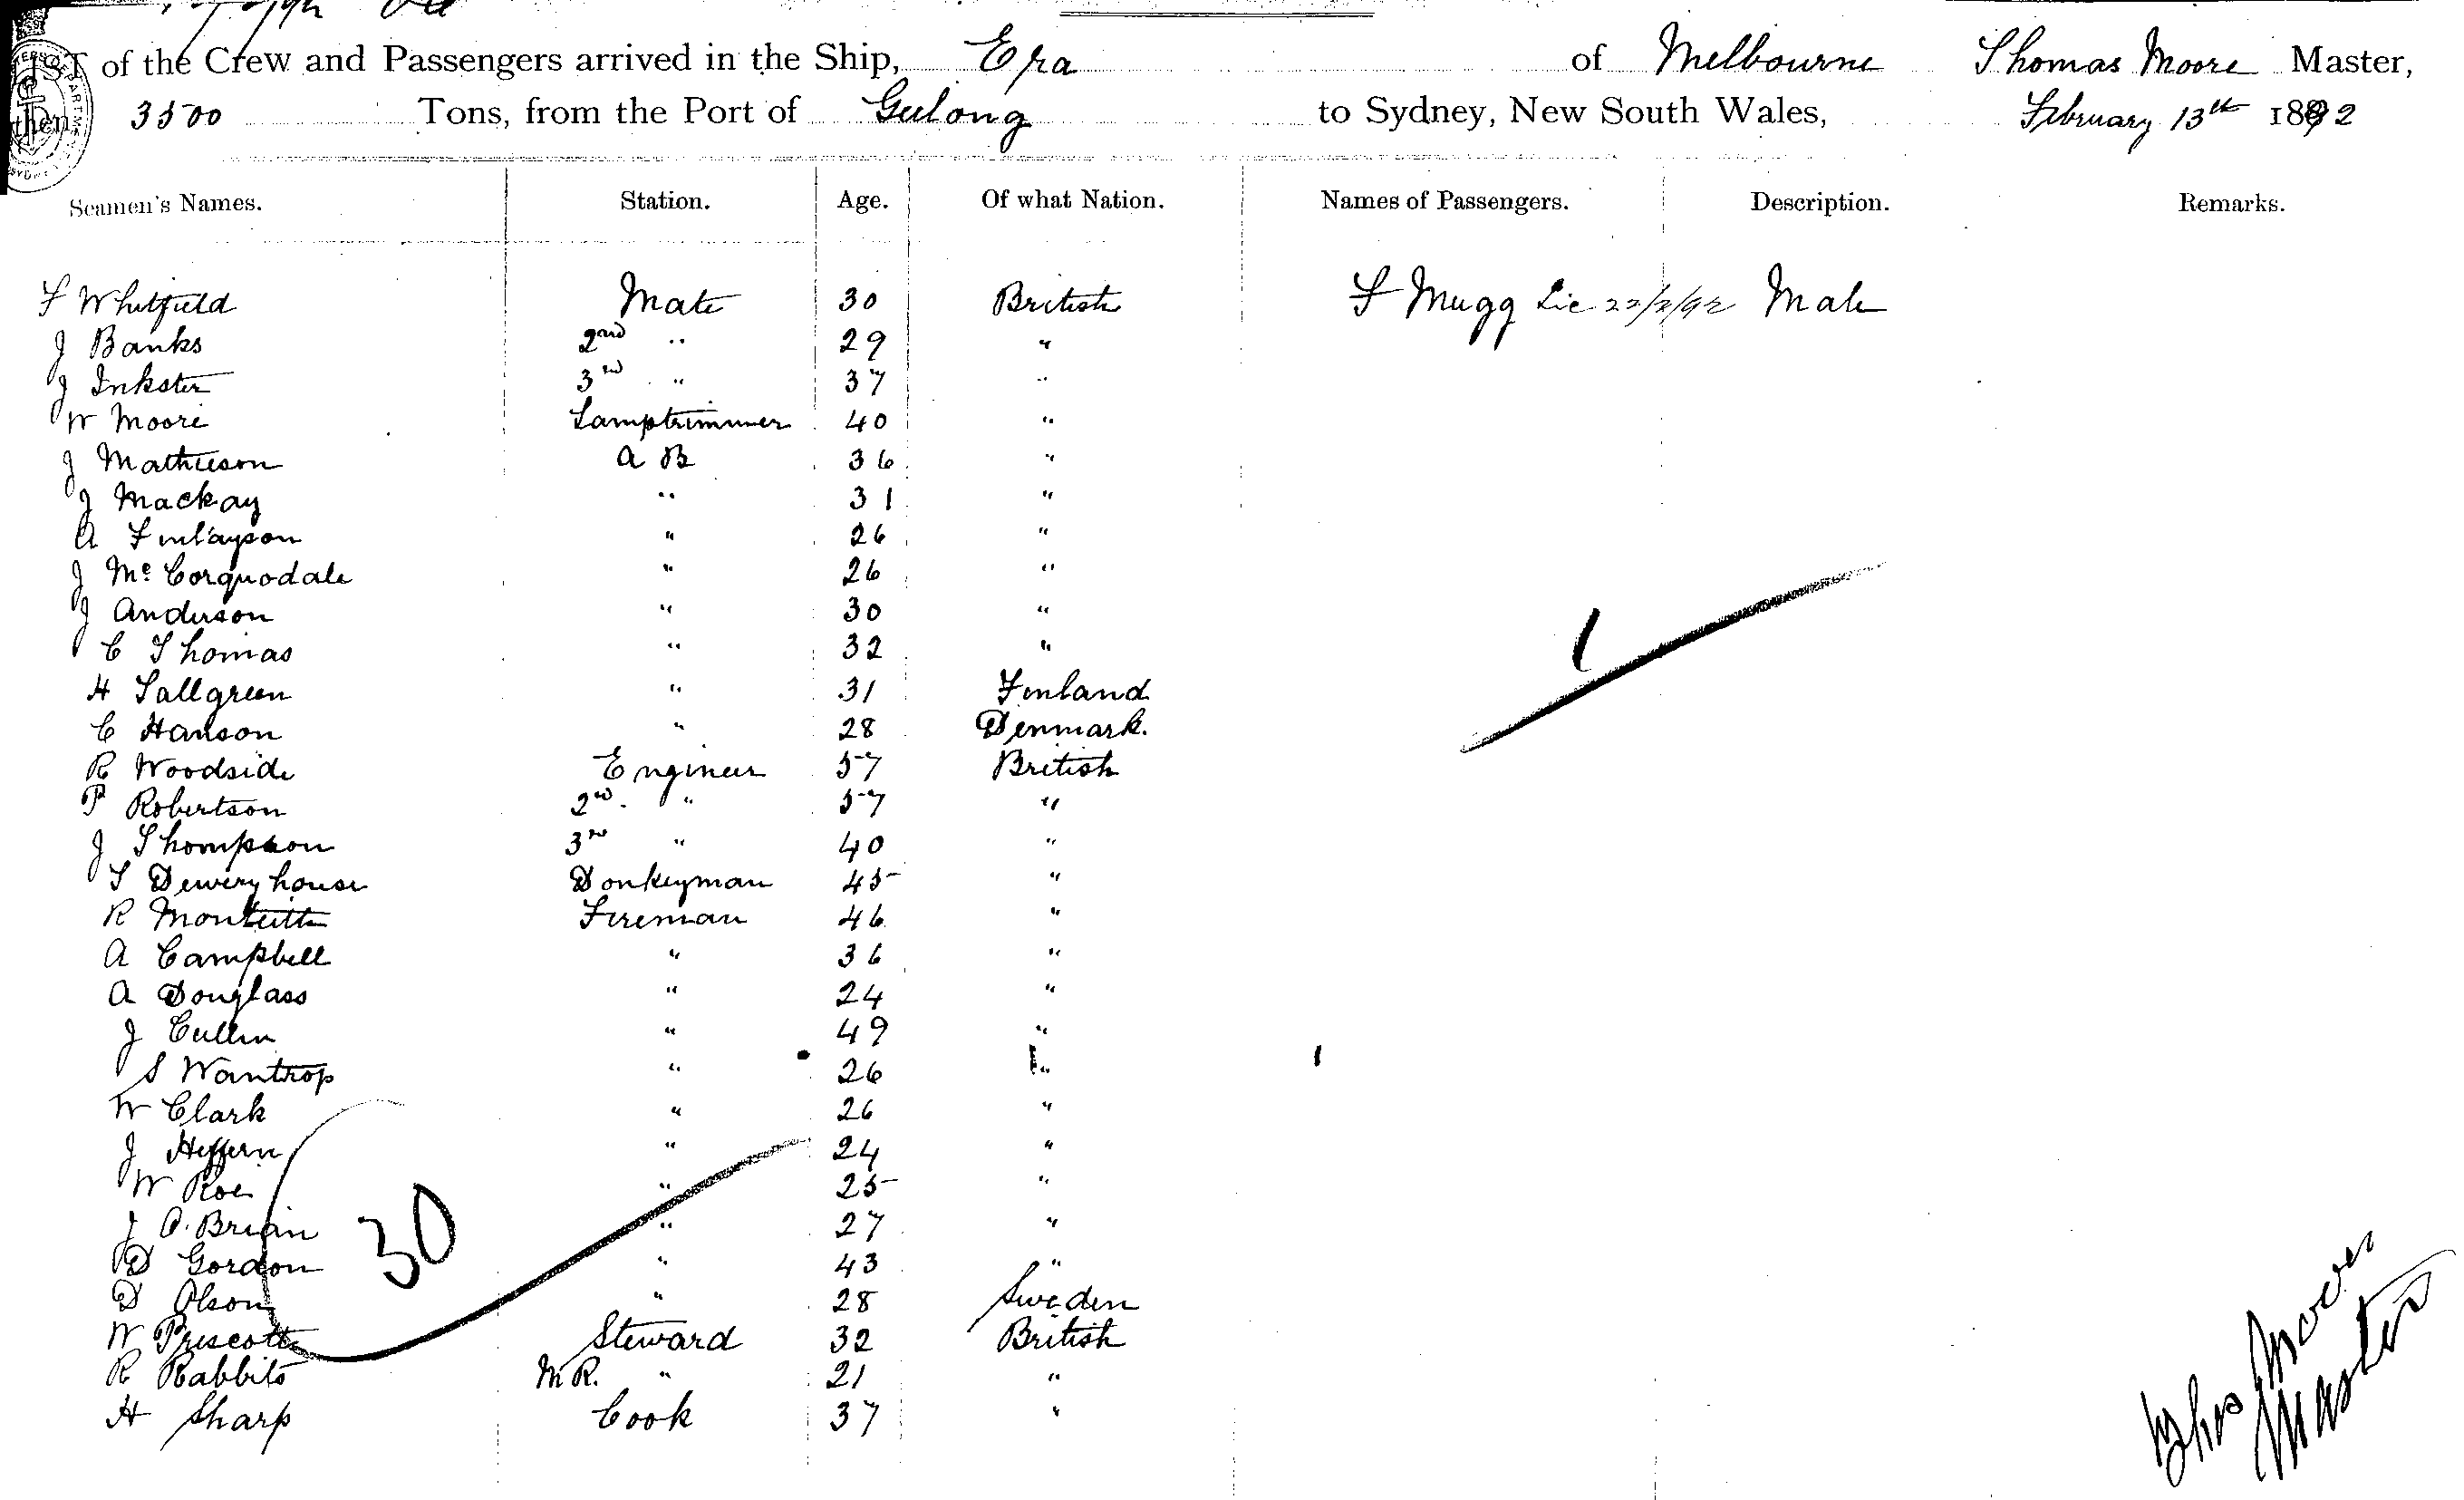 LIST of the Crew and Passengers arrived in the Ship, Era of Melbourne Thomas Moore Master,
Burthen 3500 Tons, from the Port of Geelong to Sydney, New South Wales, February 13th 1892
Seamen's Names. Station. Age. Of what Nation. Names of Passengers. Description. Remarks.
F Whitfield Mate 30 British F Mugg Lic 22/2/92 Male
J Banks 2nd " 29 "
J Inkster 3rd " 37 "
W Moore Lamptrimmer 40 "
J Mathieson A B 36 "
J Mackay " 31 "
A Finlayson " 26 "
J Mc Corquodale " 26 "
J Anderson " 30 "
C Thomas " 32 "
H Sallgreen " 31 Finland
C Hanson " 28 Denmark.
R Woodside Engineer 57 British
P Robertson 2nd " 57 "
J Thompson 3rd " 40 "
T Deweryhouse Donkeyman 45 "
R Monteith Fireman 46 "
A Campbell " 36 "
A Douglass " 24 "
J Cullen " 49 "
S Wantrop " 26 "
W Clark " 26 "
J Heffern " 24 "
W Roe " 25 "
J O.Brian " 27 "
D Gordon " 43 "
D Olson " 28 Sweden
W Prescott Steward 32 British
R Rabbits M R. " 21 "
H Sharp Cook 37 "
1
30
Thos Moore
Master